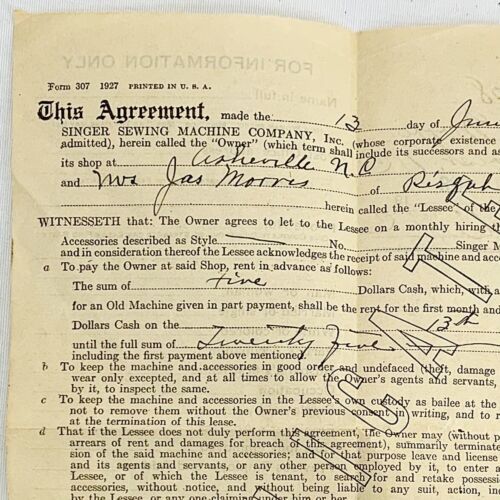 FOR INFORMATION ONLY
Name in full
Form 307 1927 PRINTED IN U. S. A.
This Agreement, made the 13 day of June
SINGER SEWING MACHINE COMPANY, Inc. (whose corporate existence
admitted), herein called the "Owner" (which term shall include its successors and as
its shop at Asheville N C
and Mrs Jas Morris of Pisgah
herein called the "Lessee" of the
WITNESSETH that: The Owner agrees to let to the Lessee on a monthly hiring th
Accessories described as Style No. Singer M
and in consideration thereof the Lessee acknowledges the receipt of said machine and acce
a To pay the Owner at said Shop, rent in advance as follows:
The sum of Five Dollars Cash, which, with a
for an Old Machine given in part payment, shall be the rent for the first month and
Dollars Cash on the 13th
until the full sum of Twenty Five
including the first payment above mentioned.
b To keep the machine and accessories in good order and undefaced (theft, damage
wear only excepted, and at all times to allow the Owner's agents and servants,
by it, to inspect the same.
c To keep the machine and accessories in the Lessee's own custody as bailee at the
not to remove them without the Owner's previous consent in writing, and to r
at the termination of this lease.
d That if the Lessee does not duly perform this agreement, the Owner may (without p
arrears of rent and damages for breach of this agreement), summarily terminat
sion of the said machine and accessories; and for that purpose leave and license
and its agents and servants, or any other person employed by it, to enter
Lessee, or of which the Lessee is tenant, to search for and retake possess
accessories, without notice, and without being liable to any suit, action, in
by the Lessee, or any one claiming under him or her.